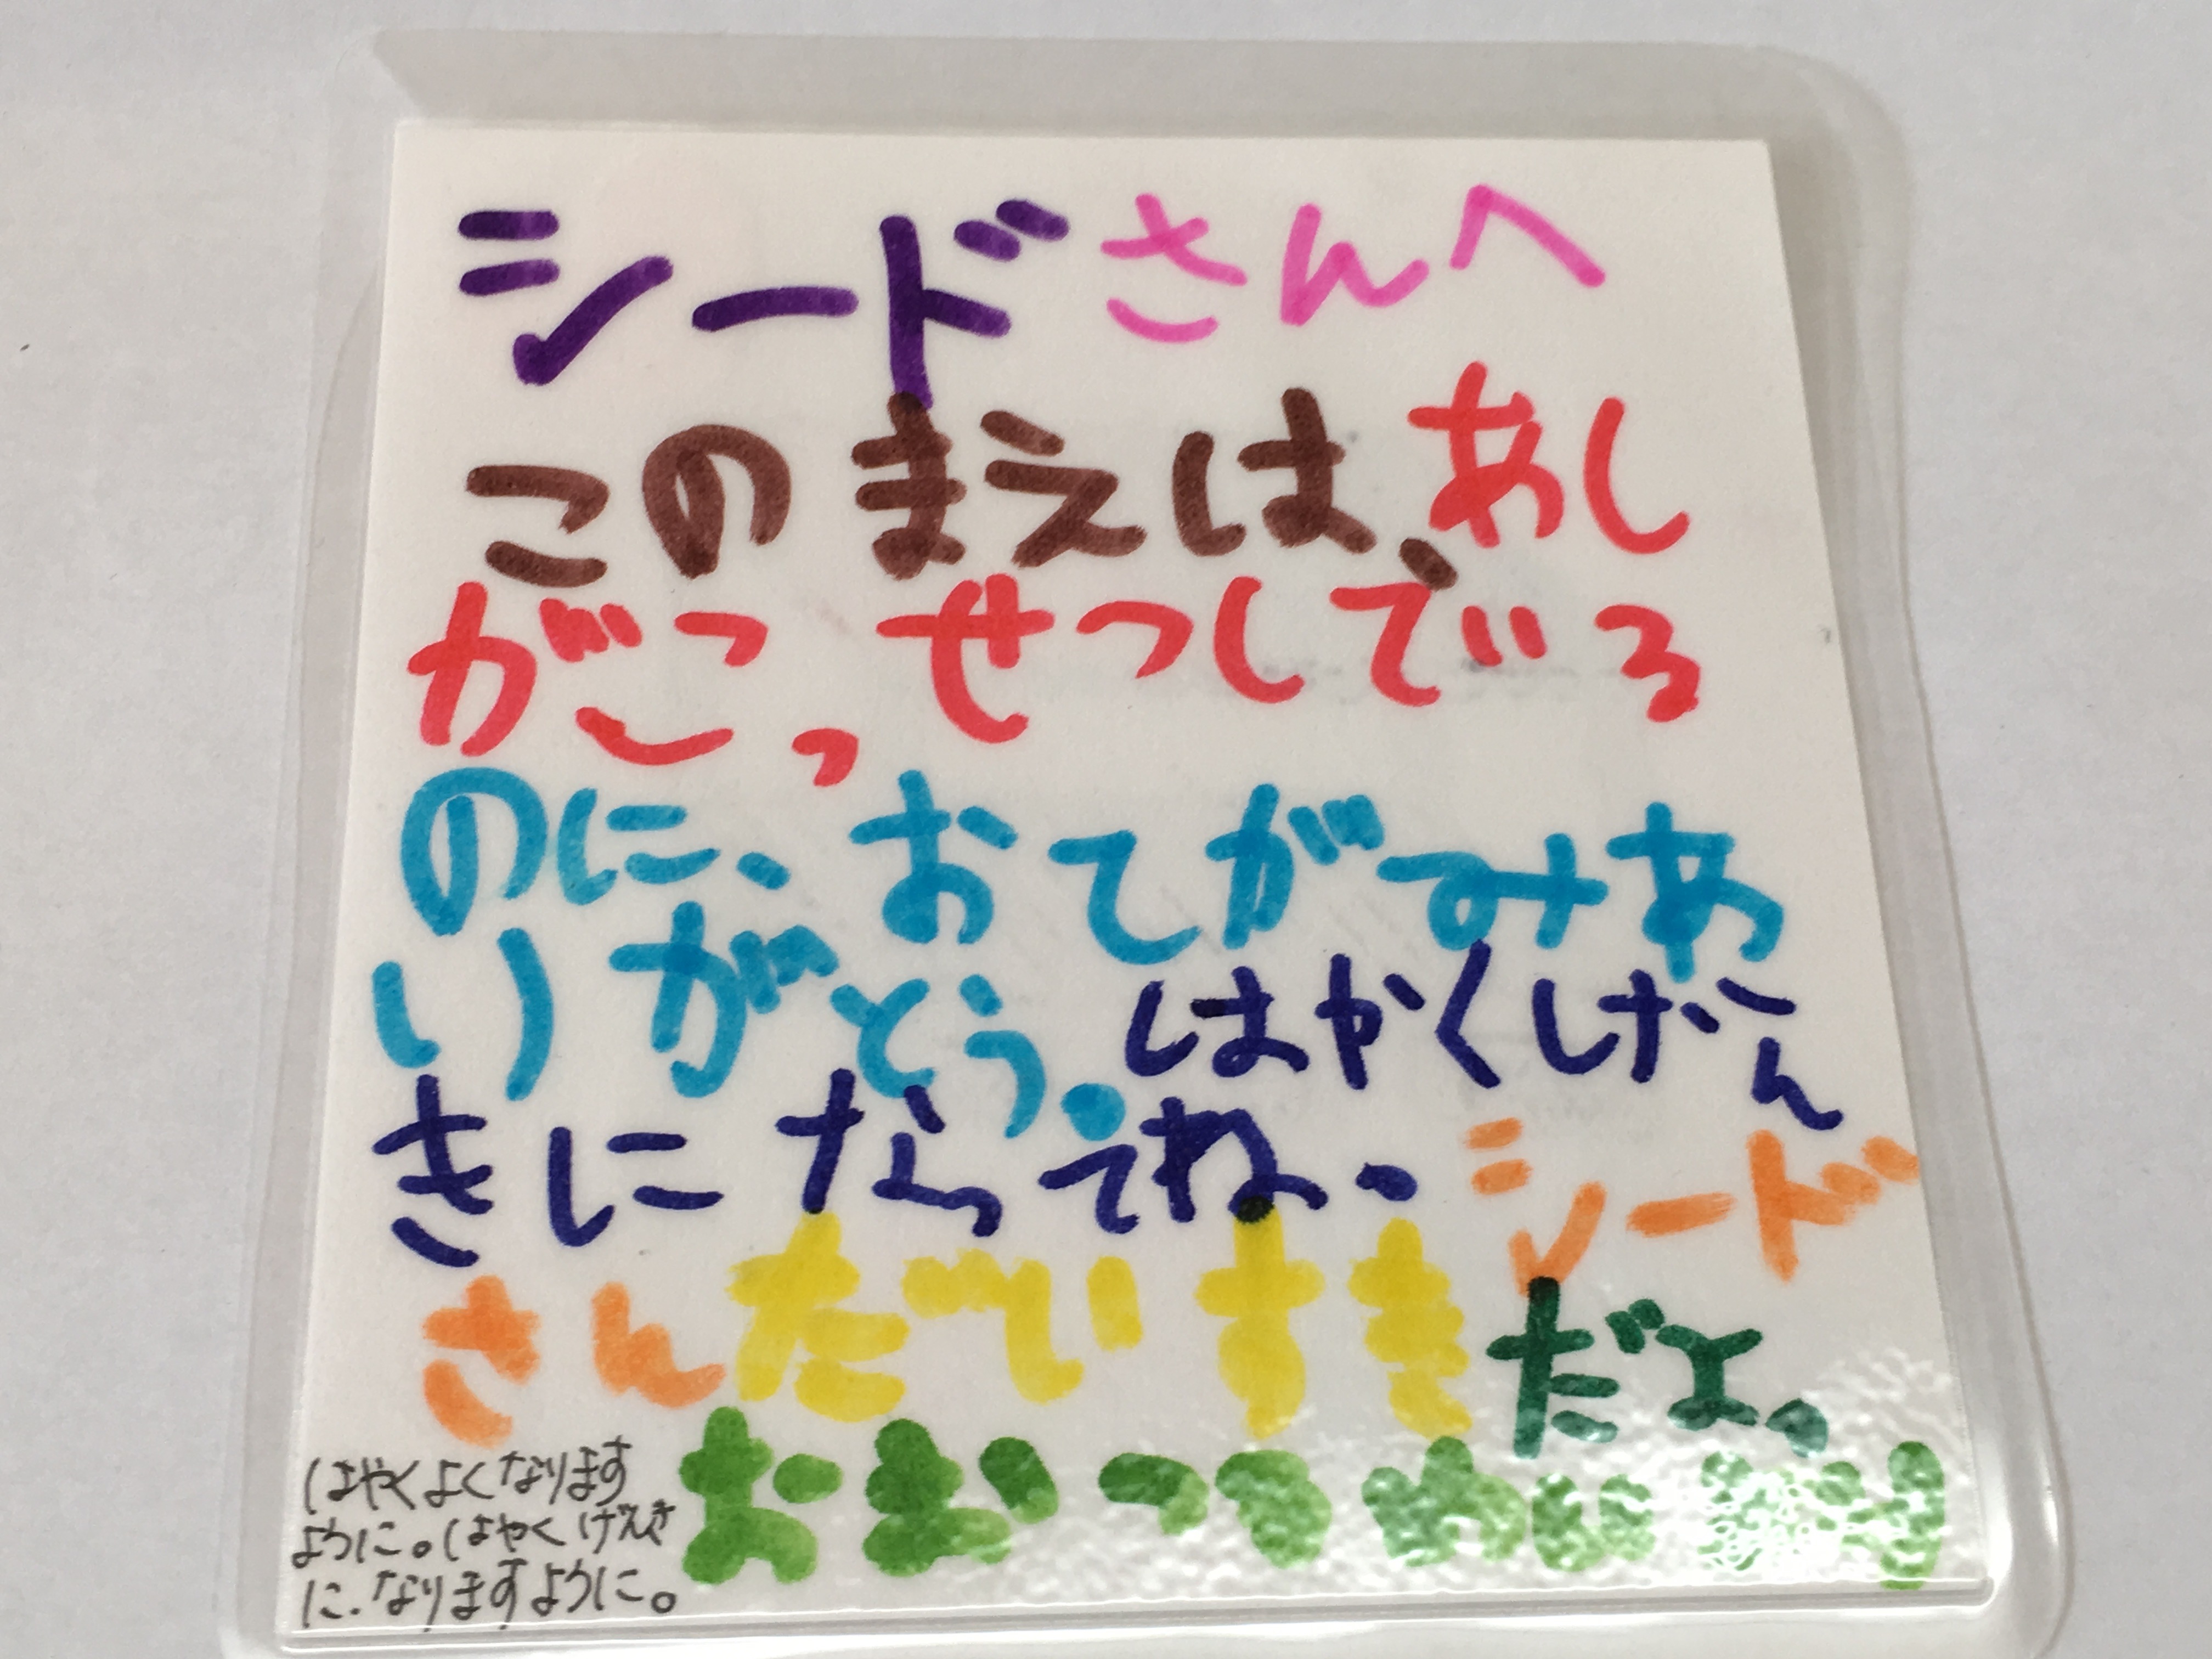 シードさんへ
このまえは、あし
がこっせつしている
のに、おてがみあ
りがとう。はやくげん
きになってね、シード
さんだいすきだよ。
はやくよくなります
ように。はやくげんき
に、なりますように。